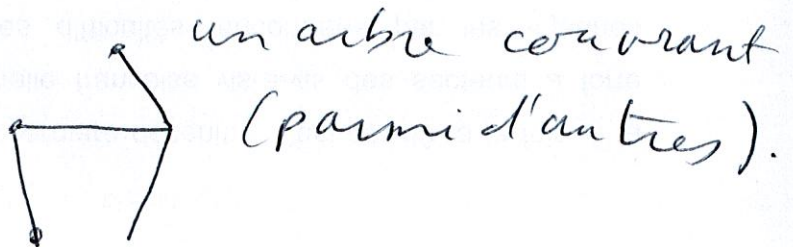 un arbre couvrant
(parmi d'autres).